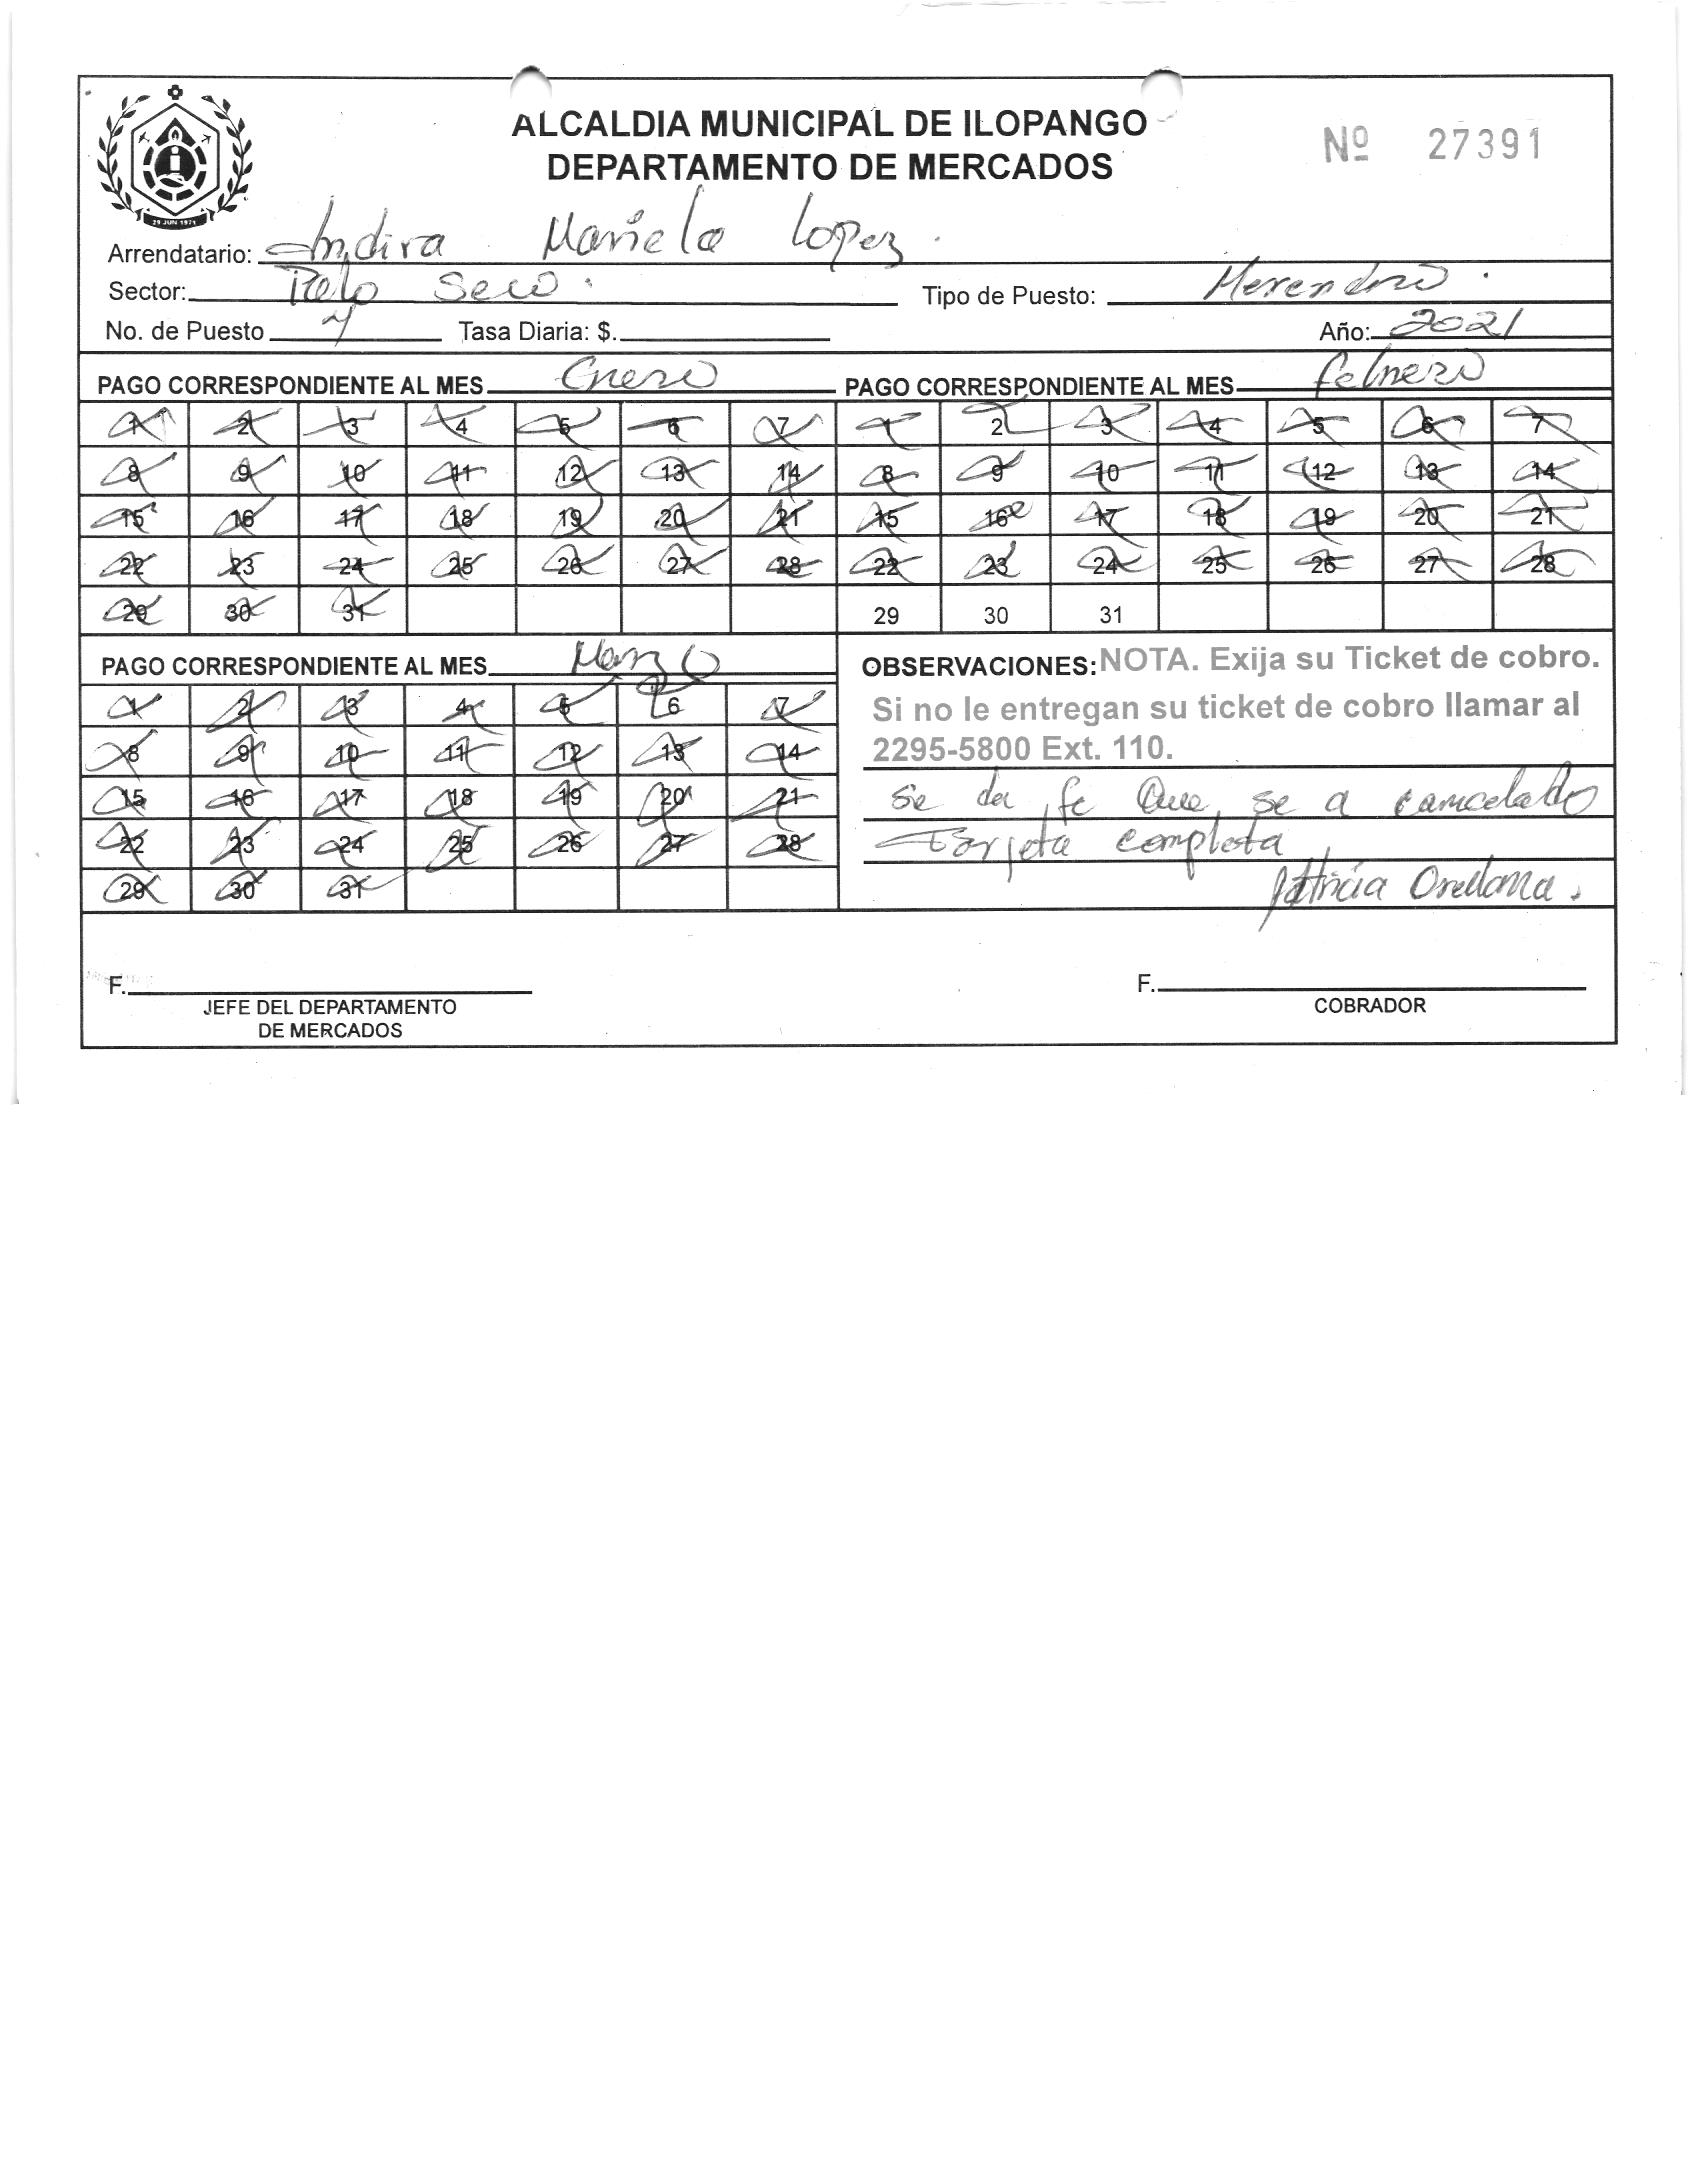 ALCALDIA MUNICIPAL DE ILOPANGO
DEPARTAMENTO DE MERCADOS
Nº 27391
29 JUN 1971
Arrendatario: Indira Mariela Lopez.
Sector: Palo Seco. Tipo de Puesto: Merendero.
No. de Puesto 7 Tasa Diaria: $. Año: 2021
PAGO CORRESPONDIENTE AL MES Enero
1 2 3 4 5 6 7
8 9 10 11 12 13 14
15 16 17 18 19 20 21
22 23 24 25 26 27 28
29 30 31
PAGO CORRESPONDIENTE AL MES febrero
1 2 3 4 5 6 7
8 9 10 11 12 13 14
15 16 17 18 19 20 21
22 23 24 25 26 27 28
29 30 31
PAGO CORRESPONDIENTE AL MES Marzo
1 2 3 4 5 6 7
8 9 10 11 12 13 14
15 16 17 18 19 20 21
22 23 24 25 26 27 28
29 30 31
OBSERVACIONES: NOTA. Exija su Ticket de cobro.
Si no le entregan su ticket de cobro llamar al
2295-5800 Ext. 110.
se da fe Que se a cancelado
Tarjeta completa
Patricia Orellana.
F.
JEFE DEL DEPARTAMENTO
DE MERCADOS
F.
COBRADOR